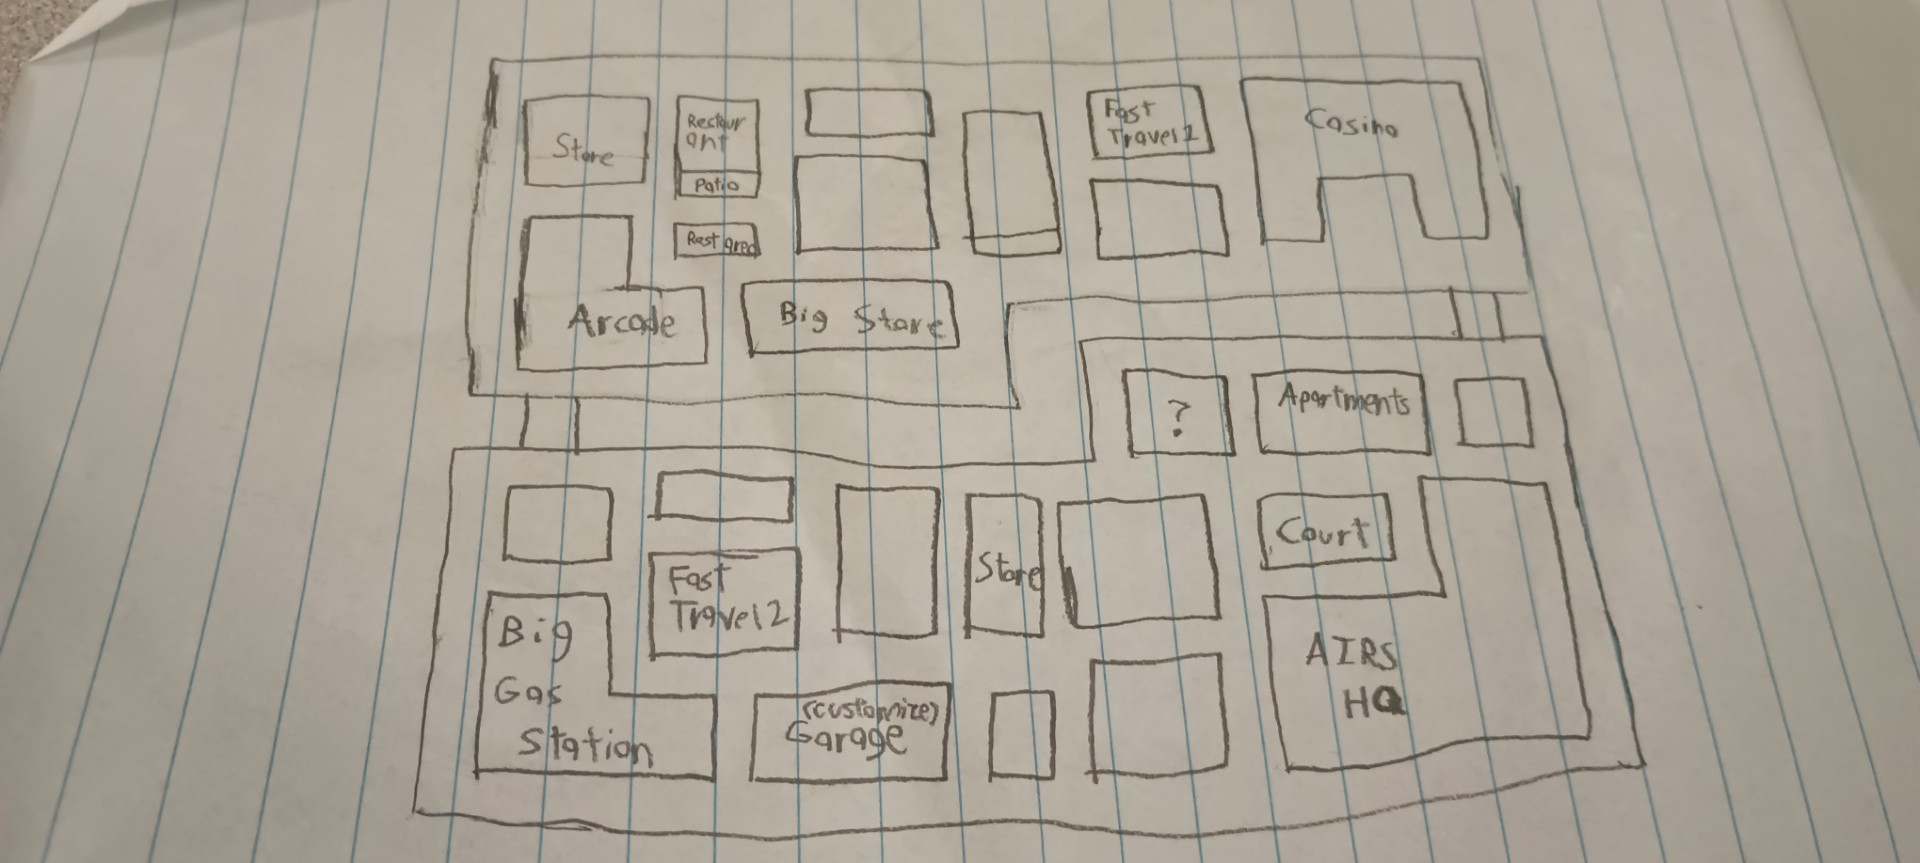 Store
Restaur
ant
Patio
Rest area
Fast
Travel 1
Casino
Arcade
Big Store
?
Apartments
Court
Fast
Travel 2
Store
Big
Gas
Station
(customize)
Garage
AIRS
HQ